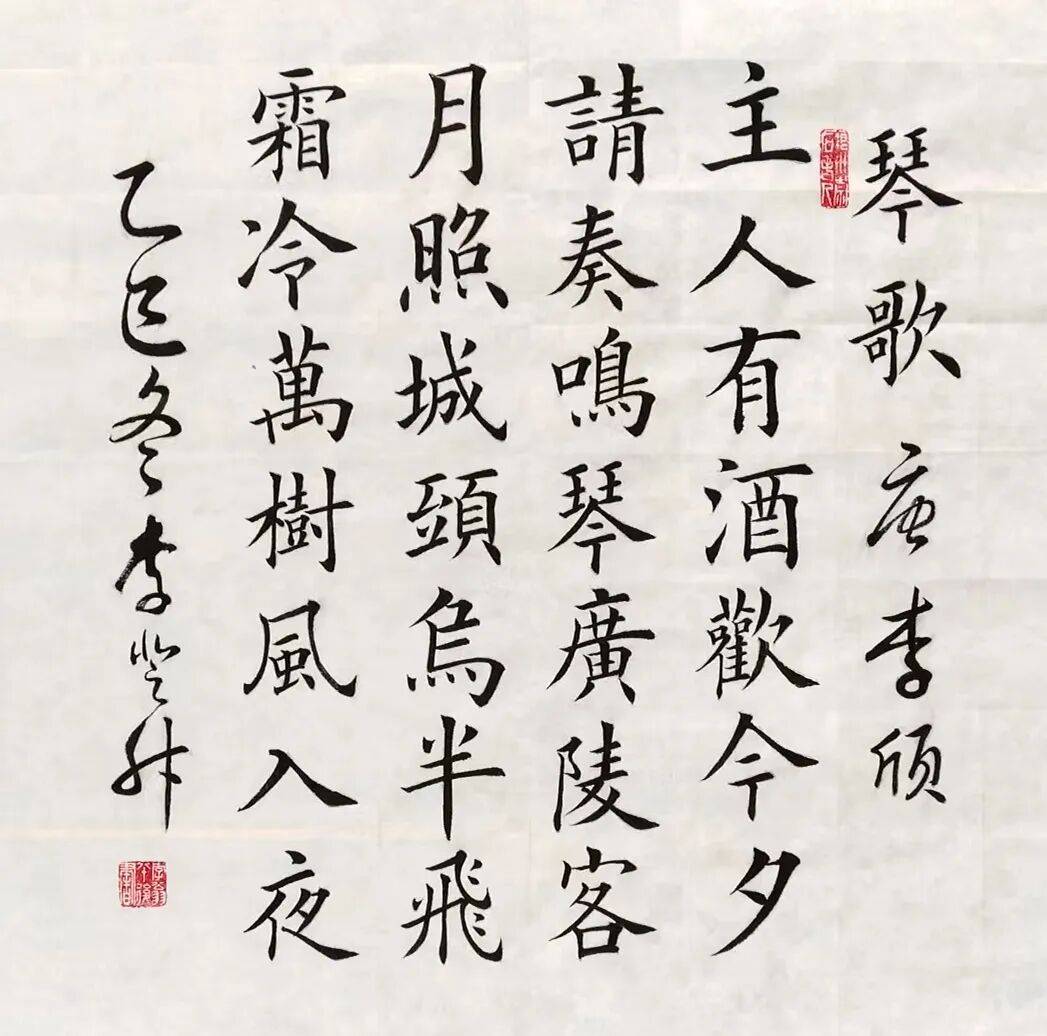 琴歌 唐 李頎
主人有酒歡今夕
請奏鳴琴廣陵客
月照城頭烏半飛
霜冷萬樹風入夜
乙巳冬李登升